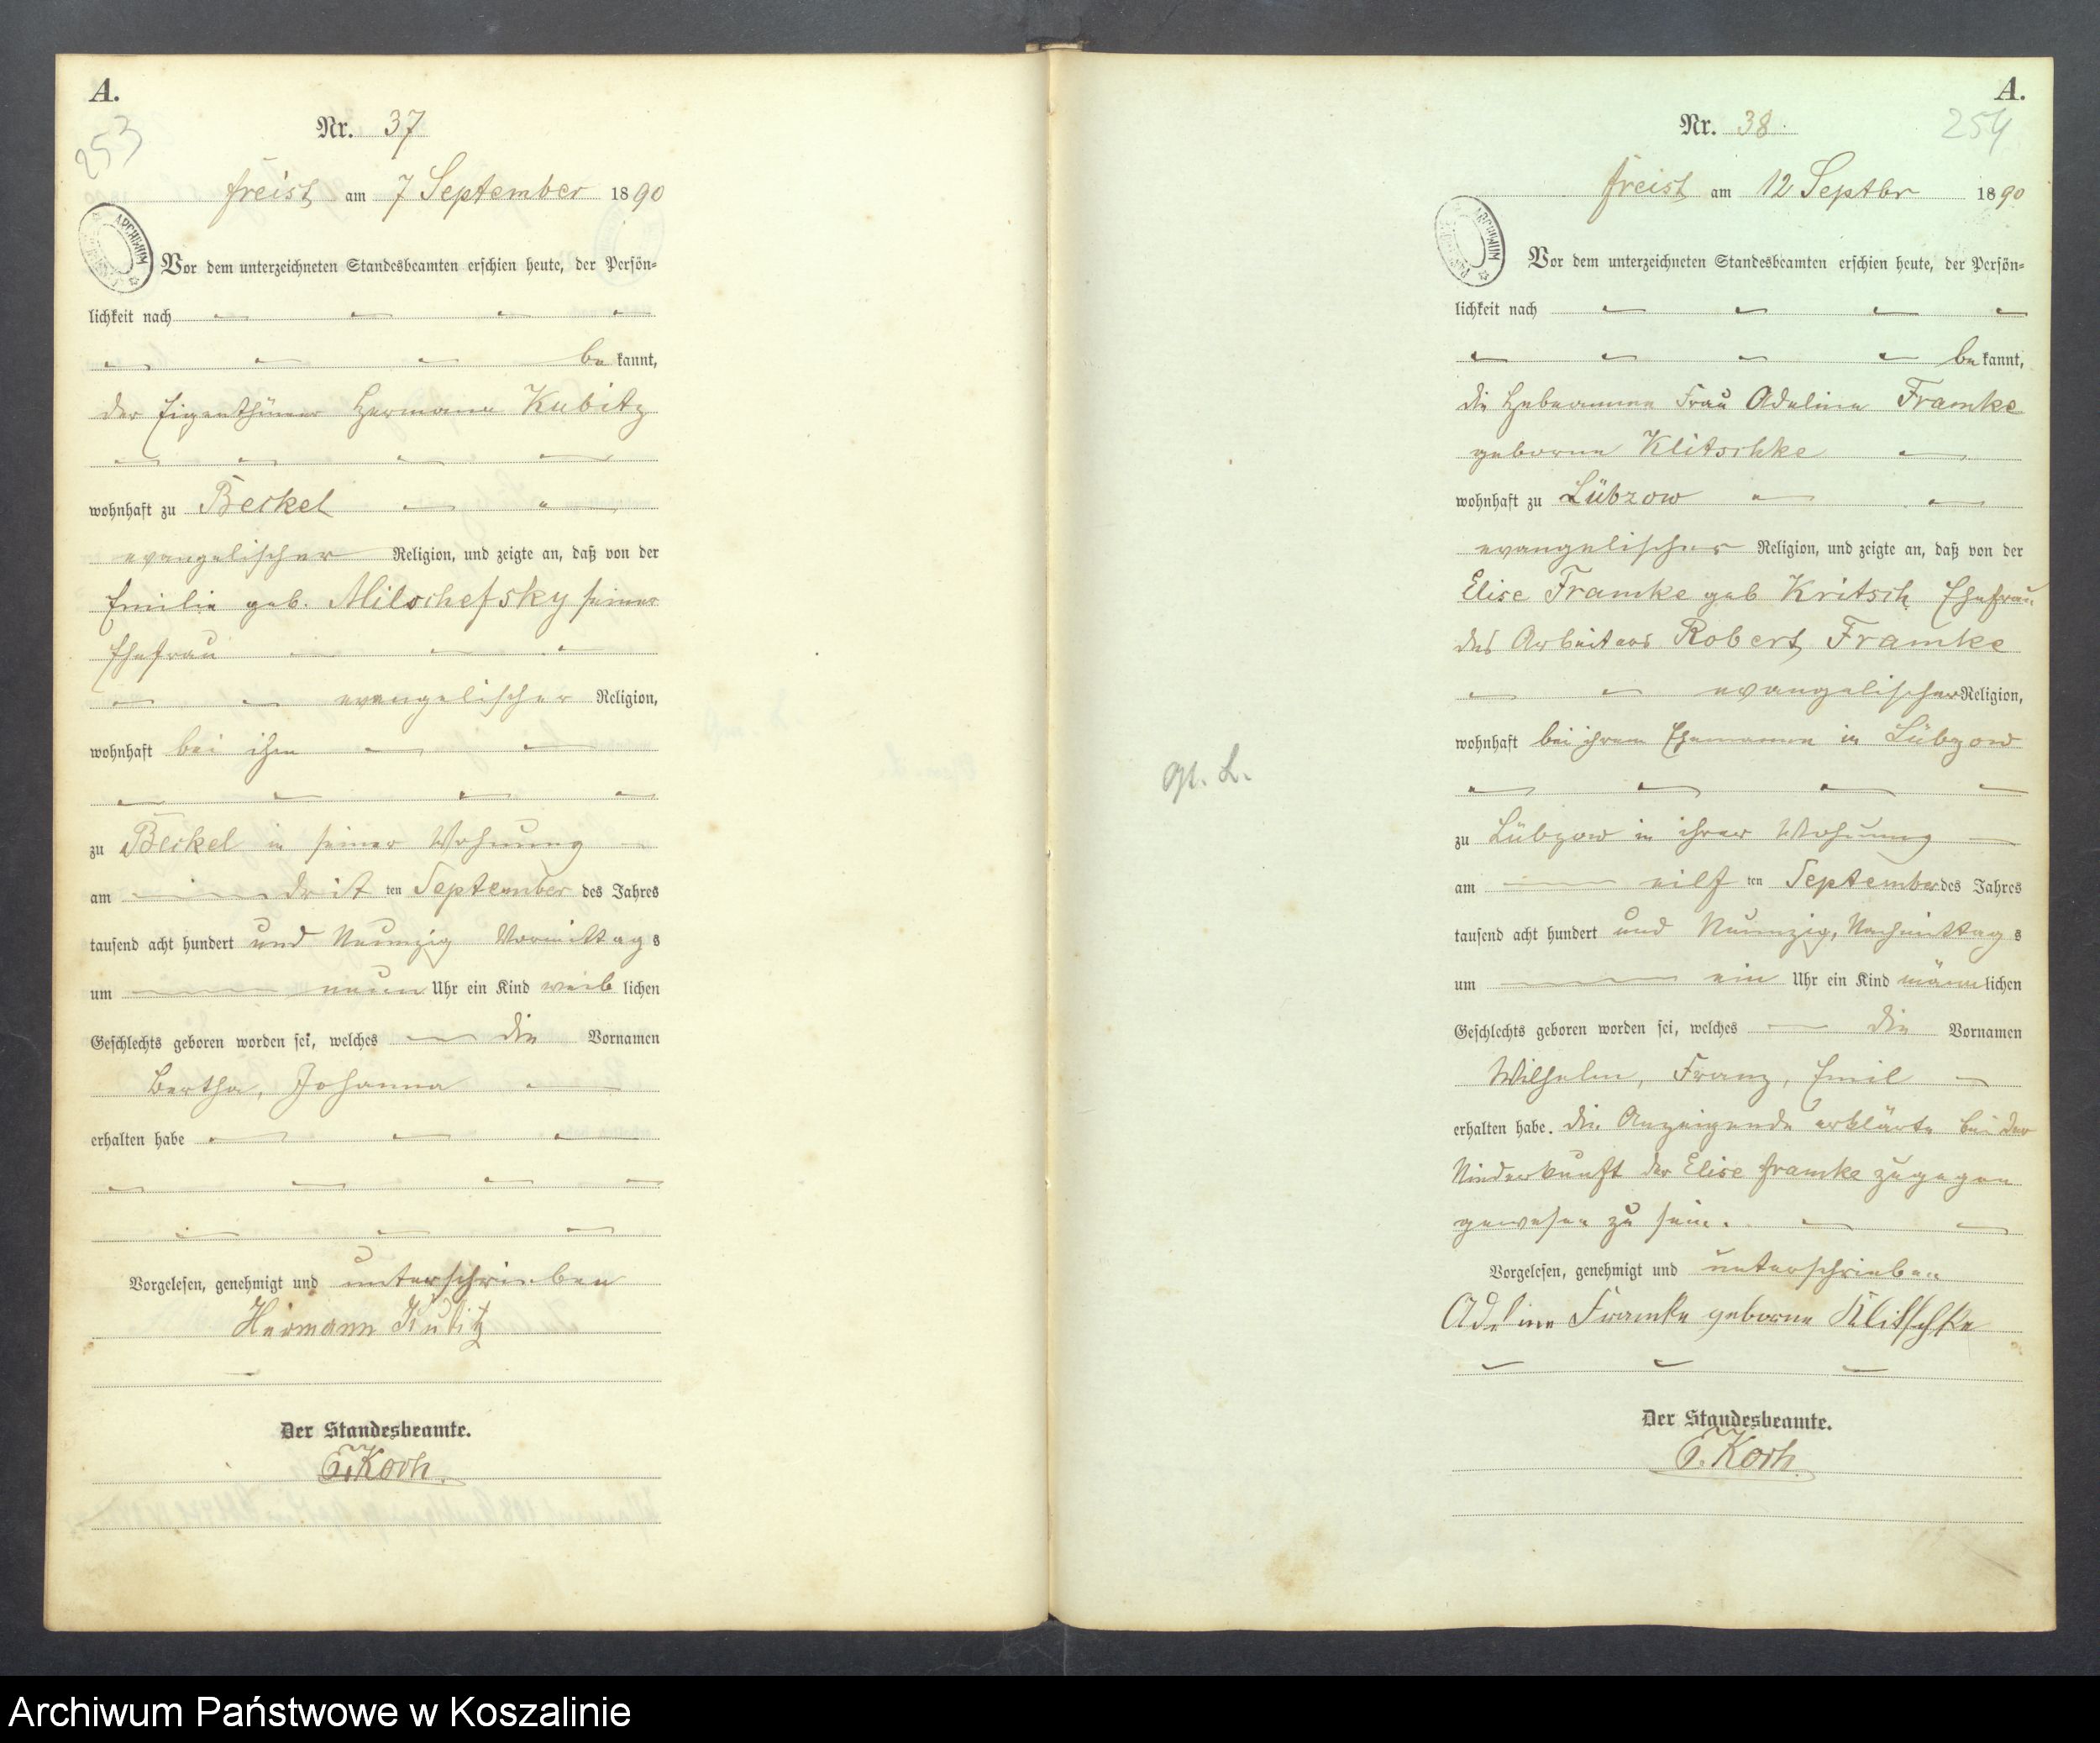 A.
253
Nr. 37
Freist am 7 September 1890
ARCHIWUM
Vor dem unterzeichneten Standesbeamten erschien heute, der Persön=
lichkeit nach
be kannt,
der Eigenthümer Hermann Kubitz
wohnhaft zu Beckel
evangelischer Religion, und zeigte an, daß von der
Emilie geb. Milschefsky seiner
Ehefrau
evangelischer Religion,
wohnhaft bei ihm
zu Beckel in seiner Wohnung
am drit ten September des Jahres
tausend acht hundert und Neunzig Vormittag s
um neun Uhr ein Kind weib lichen
Geschlechts geboren worden sei, welches die Vornamen
Bertha, Johanna
erhalten habe
Vorgelesen, genehmigt und unterschrieben
Hermann Kubitz
Der Standesbeamte.
Koch.
A.
254
Nr. 38
Freist am 12 Septbr 1890
ARCHIWUM
Vor dem unterzeichneten Standesbeamten erschien heute, der Persön=
lichkeit nach
be kannt,
die Hebeamme Frau Adeline Framke
geborne Klitschke
wohnhaft zu Lübzow
evangelischer Religion, und zeigte an, daß von der
Elise Framke geb Kritsch Ehefrau
des Arbeiters Robert Framke
evangelischer Religion,
wohnhaft bei ihrem Ehemanne in Lübzow
zu Lübzow in ihrer Wohnung
am eilf ten September des Jahres
tausend acht hundert und Neunzig, Nachmittag s
um ein Uhr ein Kind männ lichen
Geschlechts geboren worden sei, welches die Vornamen
Wilhelm, Franz, Emil
erhalten habe. die Anzeigende erklärte bei der
Niederkunft der Elise Framke zugegen
gewesen zu sein.
Vorgelesen, genehmigt und unterschrieben
Adeline Framke geborne Klitschke
Der Standesbeamte.
Koch.
Archiwum Państwowe w Koszalinie